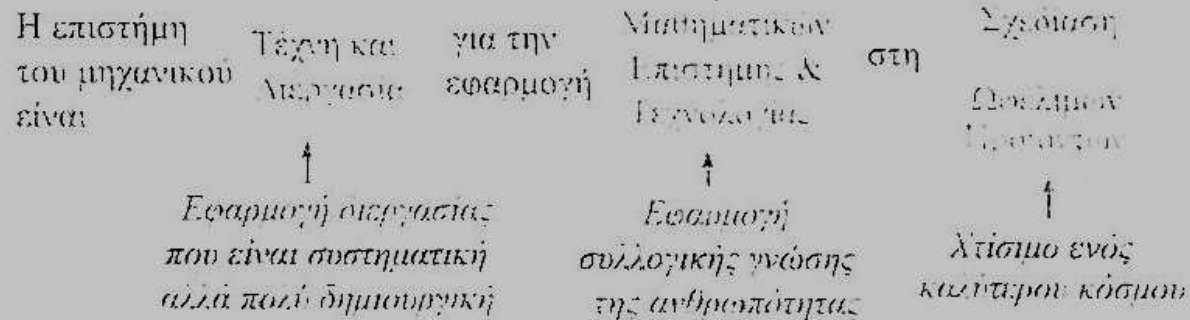 Η επιστήμη
του μηχανικού
είναι
Τέχνη και
Διεργασία
για την
εφαρμογή
Μαθηματικών
Επιστήμης &
Τεχνολογίας
στη
Σχεδίαση
Ωφέλιμων
Προϊόντων
Εφαρμογή διεργασίας
που είναι συστηματική
αλλά πολύ δημιουργική
Εφαρμογή
συλλογικής γνώσης
της ανθρωπότητας
Χτίσιμο ενός
καλύτερου κόσμου